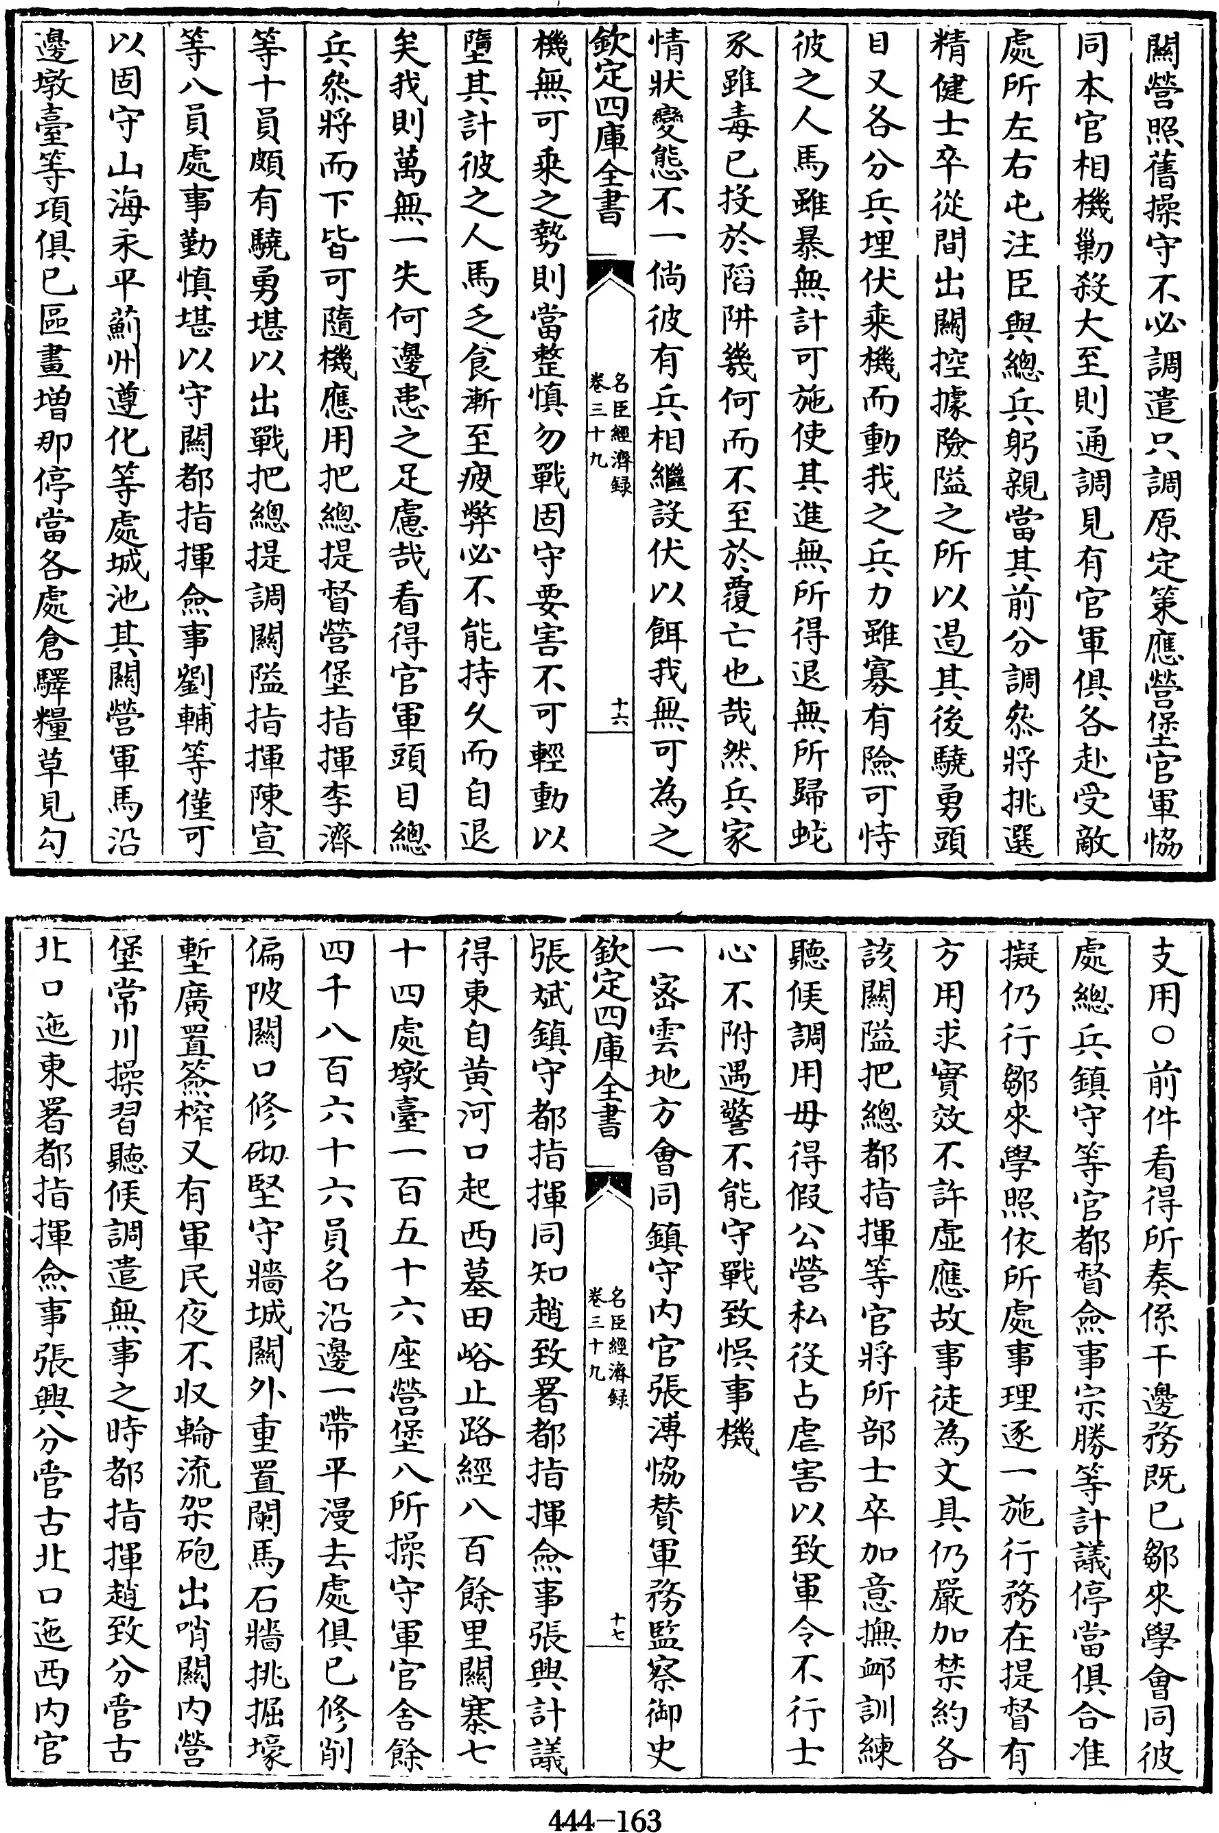 關營照舊操守不必調遣只調原定策應營堡官軍恊
同本官相機勦殺大至則通調見有官軍俱各赴受敵
處所左右屯注臣與總兵躬親當其前分調叅將挑選
精健士卒從間出關控據險隘之所以遏其後驍勇頭
目又各分兵埋伏乘機而動我之兵力雖寡有險可恃
彼之人馬雖暴無計可施使其進無所得退無所歸蛇
豕雖毒已投於䧟阱幾何而不至於覆亡也哉然兵家
情狀變態不一倘彼有兵相繼設伏以餌我無可為之
欽定四庫全書
名臣經濟録
卷三十九
十六
機無可乘之勢則當整慎勿戰固守要害不可輕動以
墮其計彼之人馬乏食漸至疲弊必不能持久而自退
矣我則萬無一失何邊患之足慮哉看得官軍頭目總
兵叅將而下皆可隨機應用把總提督營堡指揮李濟
等十員頗有驍勇堪以出戰把總提調關隘指揮陳宣
等八員處事勤慎堪以守關都指揮僉事劉輔等僅可
以固守山海永平薊州遵化等處城池其關營軍馬沿
邊墩臺等項俱已區畫增那停當各處倉驛糧草見勾
支用○前件看得所奏係干邊務既已鄒來學會同彼
處總兵鎮守等官都督僉事宗勝等計議停當俱合准
擬仍行鄒來學照依所處事理逐一施行務在提督有
方用求實效不許虚應故事徒為文具仍嚴加禁約各
該關隘把總都指揮等官將所部士卒加意撫卹訓練
聽候調用毋得假公營私役占虐害以致軍令不行士
心不附遇警不能守戰致悞事機
一宻雲地方會同鎮守内官張溥恊賛軍務監察御史
欽定四庫全書
名臣經濟録
卷三十九
十七
張斌鎮守都指揮同知趙致署都指揮僉事張興計議
得東自黄河口起西墓田峪止路經八百餘里關寨七
十四處墩臺一百五十六座營堡八所操守軍官舍餘
四千八百六十六員名沿邊一帶平漫去處俱已修削
偏陂關口修砌堅守牆城關外重置闌馬石牆挑掘壕
塹廣置簽榨又有軍民夜不收輪流架砲出哨關内營
堡常川操習聽候調遣無事之時都指揮趙致分管古
北口迤東署都指揮僉事張興分管古北口迤西内官
444-163